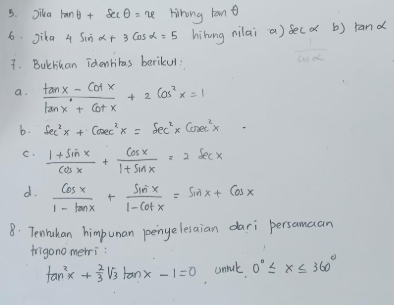 5. Jika tan θ + Sec θ = x hitung tan θ
6. Jika 4 Sin α + 3 Cos α = 5 hitung nilai a) Sec α b) tan α
7. Buktikan identitas berikut:
a. (tan x - Cot x)/(tan x + Cot x) + 2 Cos² x = 1
b. Sec² x + Cosec² x = Sec² x Cosec² x
c. (1 + Sin x)/(Cos x) + (Cos x)/(1 + Sin x) = 2 Sec x
d. (Cos x)/(1 - tan x) + (Sin x)/(1 - Cot x) = Sin x + Cos x
8. Tentukan himpunan penyelesaian dari persamaan
trigonometri :
tan² x + 2/3 √3 tan x - 1 = 0, untuk 0° ≤ x ≤ 360°